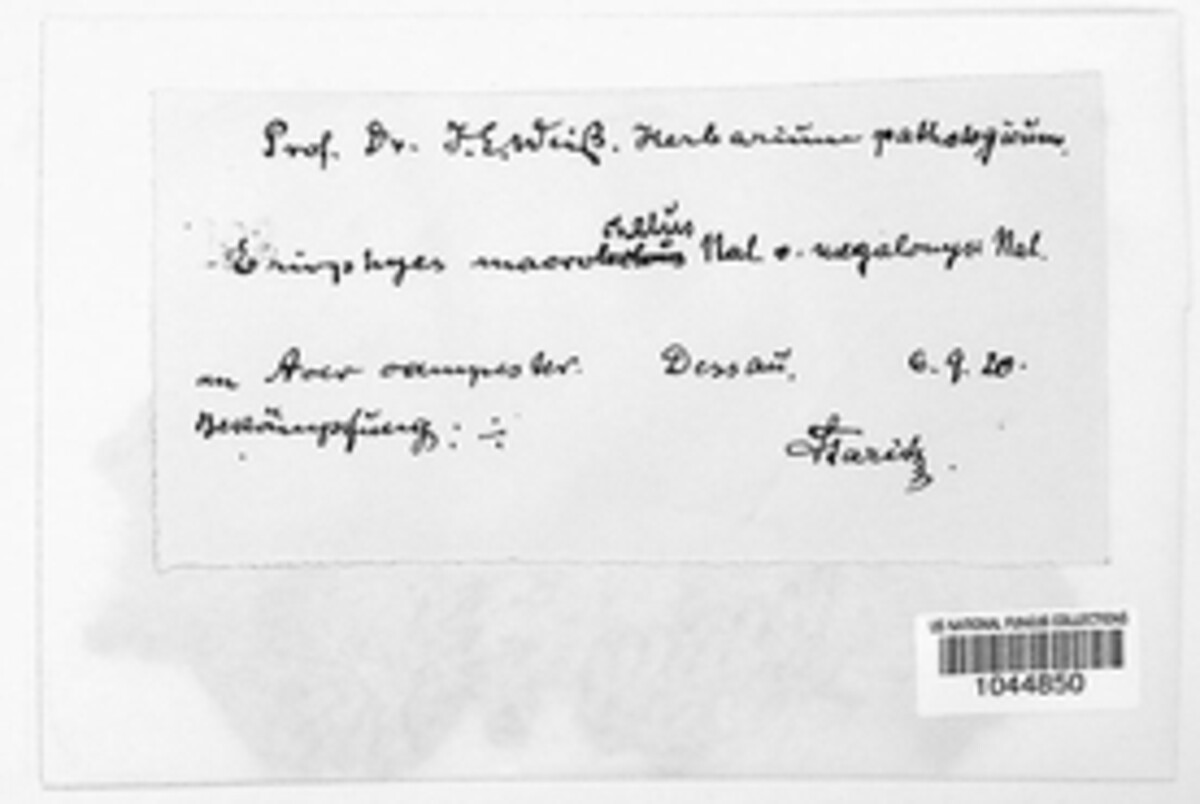 Prof. Dr. J. E. Weiß. Herbarium pathologicum.
Eriophyes macrochelus Nal. v. megalonyx Nal.
an Acer campester. Dessau, 6. 9. 20.
Bekämpfung: ÷
Staritz.
US NATIONAL FUNGUS COLLECTIONS
1044850